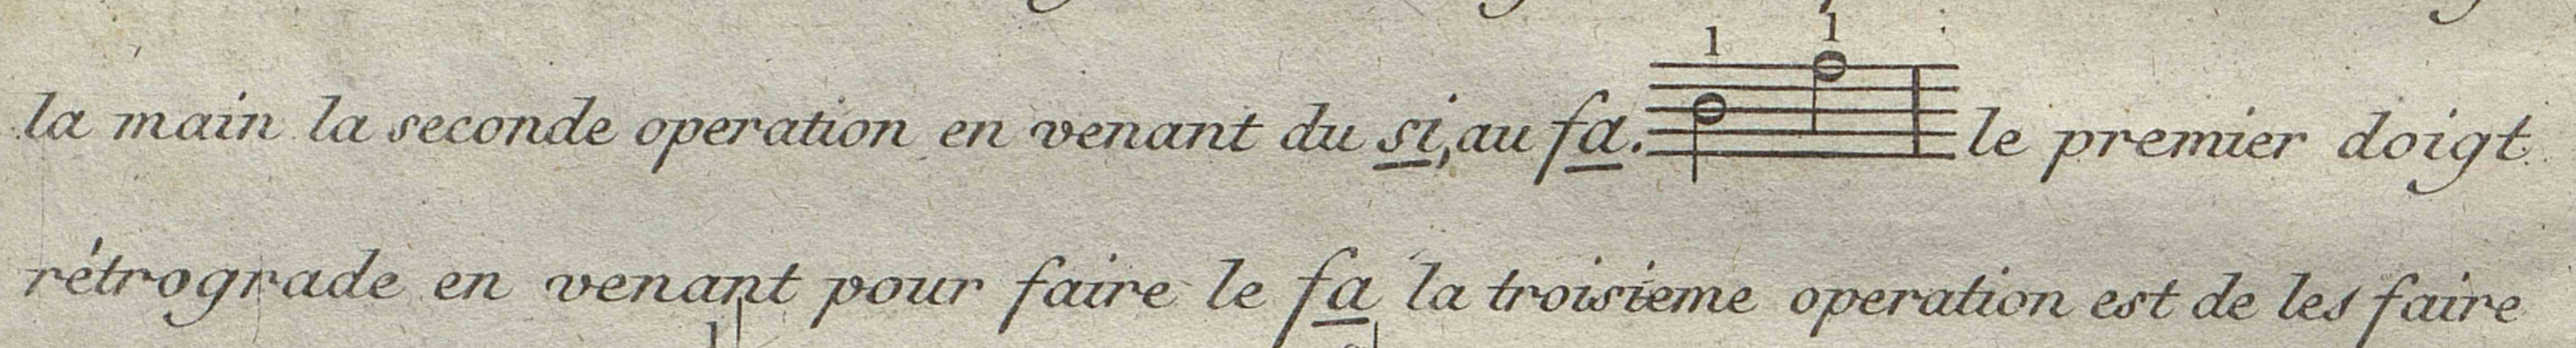 1 1
la main la seconde operation en venant du si, au fa. le premier doigt
rétrograde en venant pour faire le fa la troisieme operation est de les faire
1